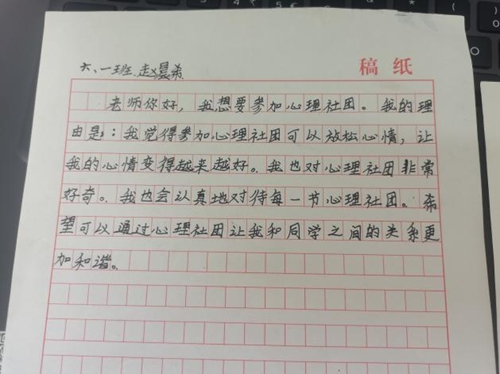 稿纸
六、一班 赵昙希
老师你好，我想要参加心理社团。我的理
由是：我觉得参加心理社团可以放松心情，让
我的心情变得越来越好。我也对心理社团非常
好奇。我也会认真地对待每一节心理社团。希
望可以通过心理社团让我和同学之间的关系更
加和谐。